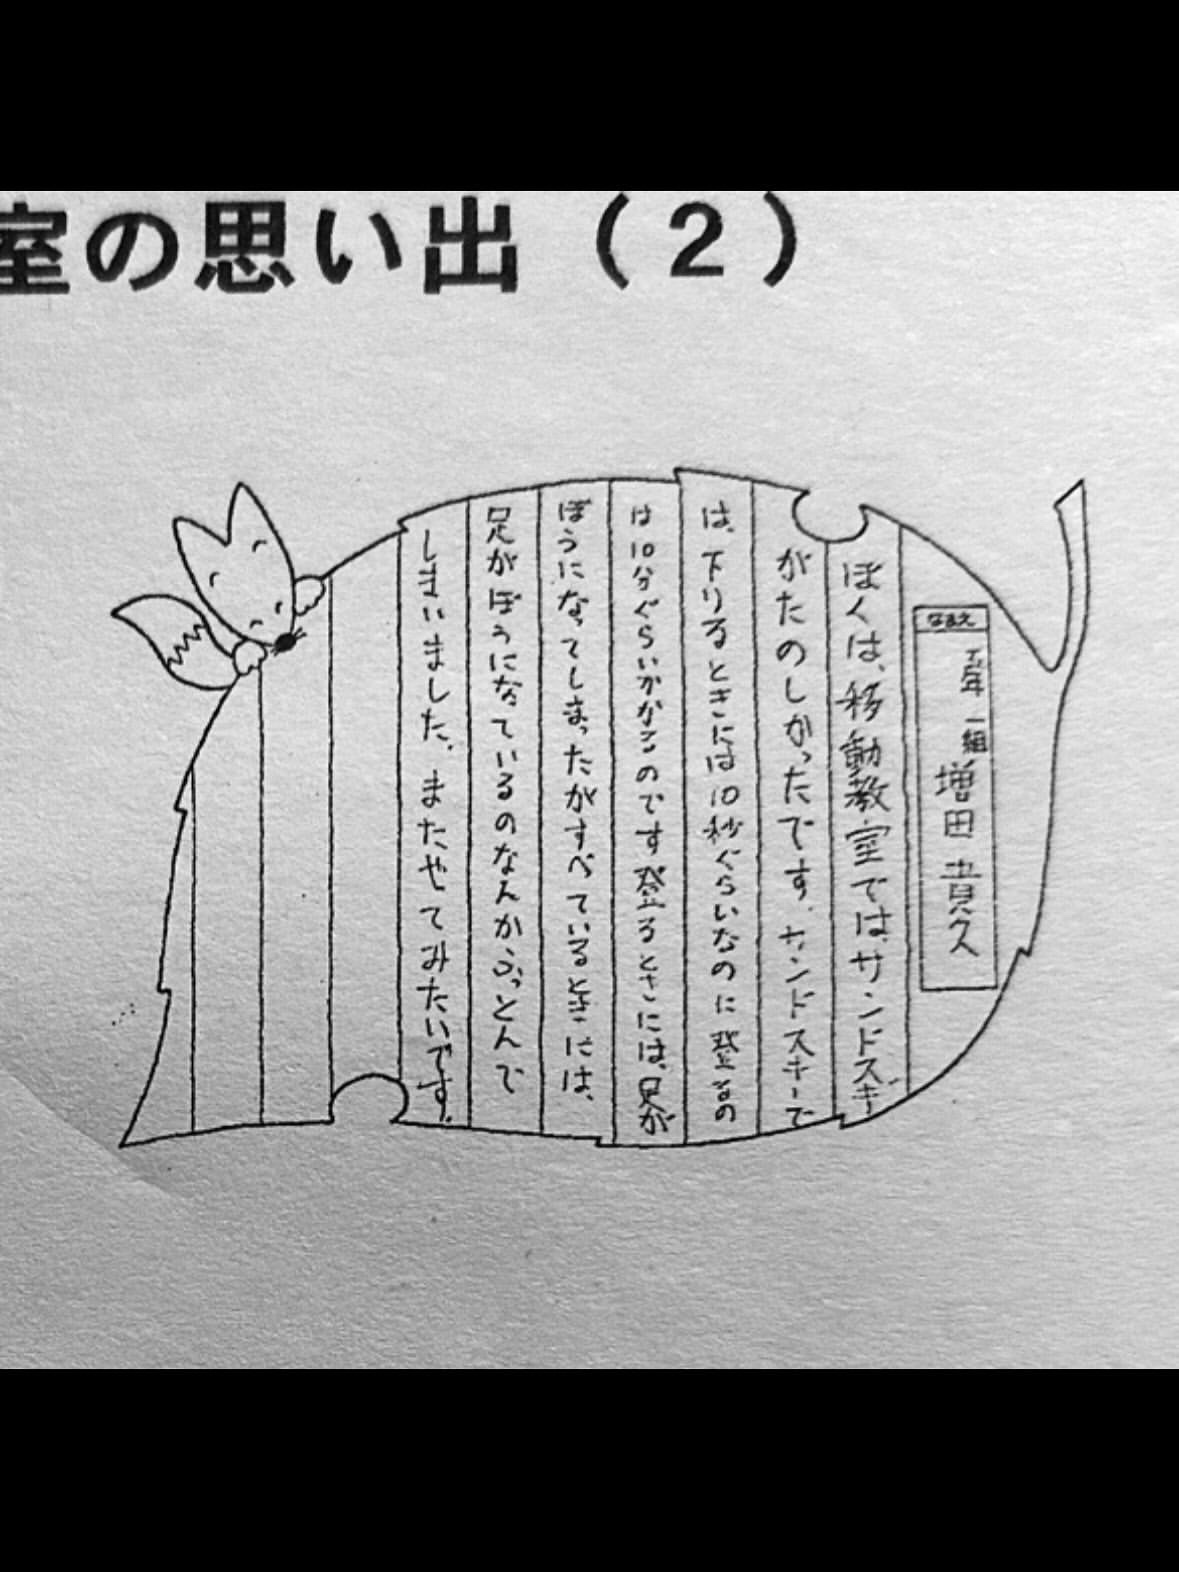 室の思い出（２）
なまえ
五年 一組
増田 貴久
ぼくは、移動教室では、サンドスキー
がたのしかったです。サンドスキーで
は、下りるときには10秒ぐらいなのに登るの
は10分ぐらいかかるのです登るときには、足が
ぼうになってしまったがすべているときには、
足がぼうになっているのなんかふっとんで
しまいました。またやてみたいです。